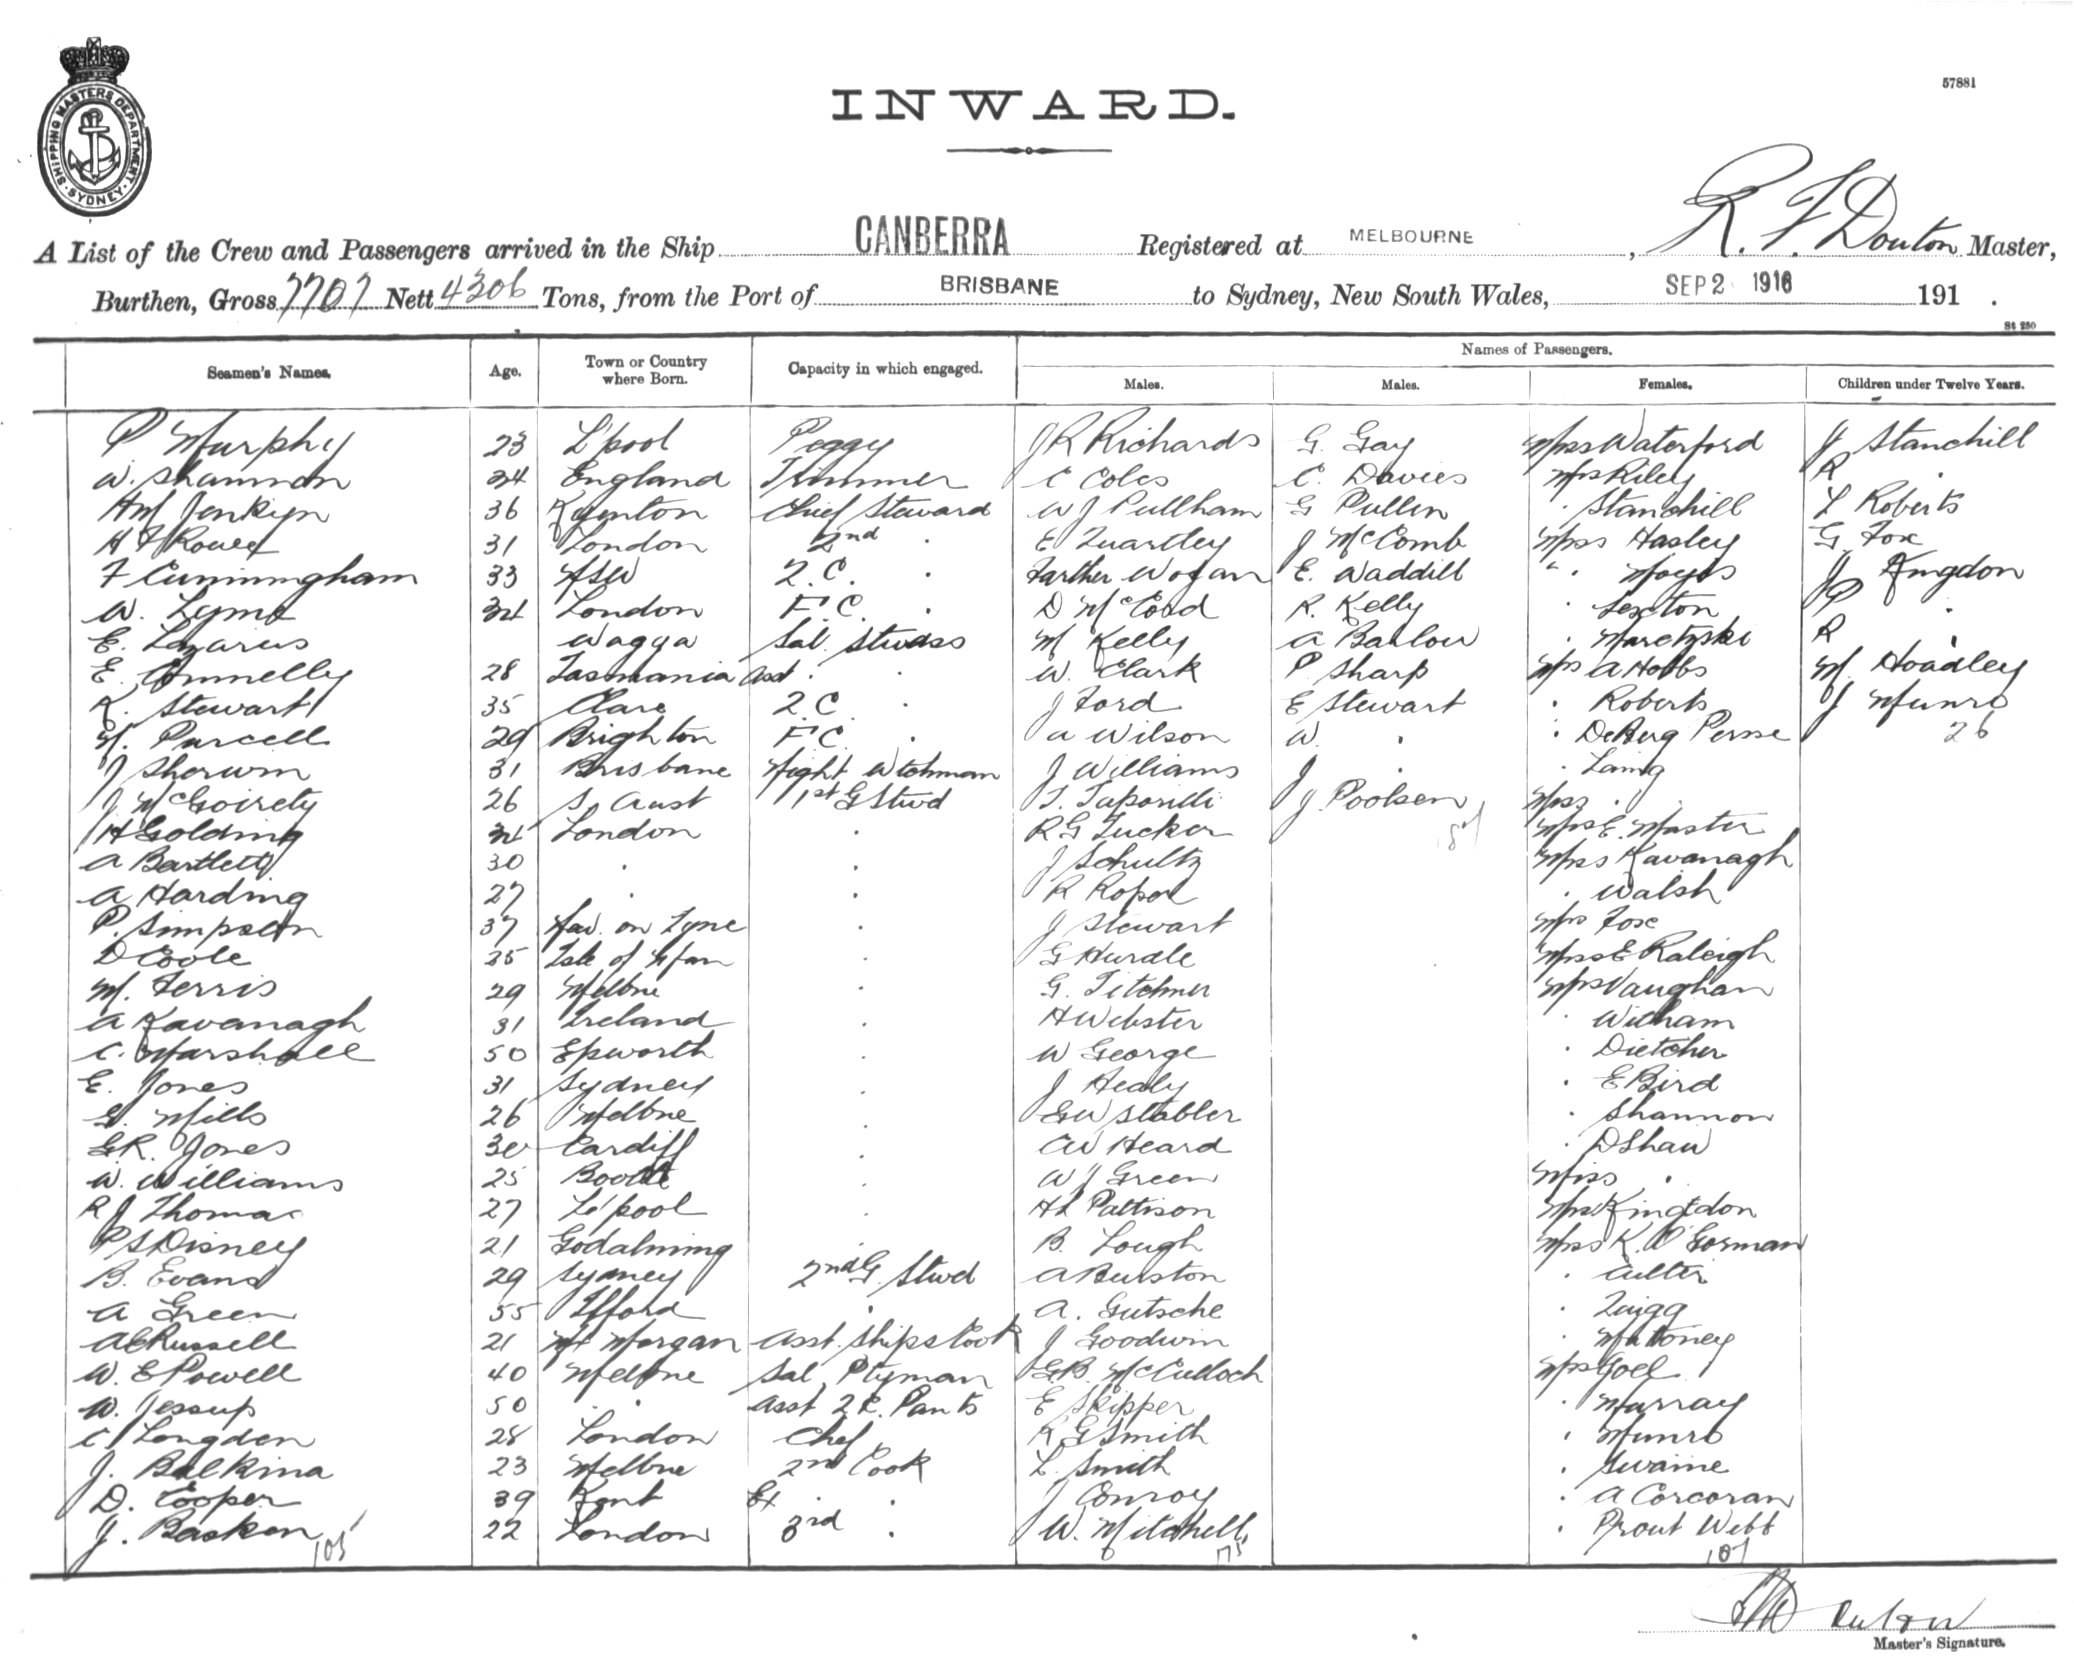 SHIPPING MASTERS DEPARTMENT. SYDNEY
57881
INWARD.
A List of the Crew and Passengers arrived in the Ship CANBERRA Registered at MELBOURNE, R. F. Douton Master,
Burthen, Gross 7707 Nett 4306 Tons, from the Port of BRISBANE to Sydney, New South Wales, SEP 2 1916 191 .
St 250
Seamen's Names. Age. Town or Country where Born. Capacity in which engaged. Names of Passengers.
Males. Males. Females. Children under Twelve Years.
P Murphy 23 L'pool Peggy J R Richards G. Gay Miss Waterford J Stanchill
W. Shannon 34 England Trimmer C Coles C. Davies Mrs Riley R "
HM Jenkyn 36 Kynton Chief Steward W J Pullham G Pullen " Stanchill L Roberts
H F Rouse 31 London 2nd " E Quartley J McComb Miss Hasley G. Fox
F Cunningham 33 NSW 2.C. " Farther Wogan E. Waddill " Moyes J Kingdon
W. Lyme 34 London F.C. " D McCord R. Kelly " Sexton P "
E. Lazarus Wagga Sal. Stwdss M Kelly A Barlow " R "
E. Connelly 28 Tasmania Asst " " W. Clark P Sharp Mrs A Hobbs M. Hoadley
K. Stewart 35 Clare 2.C. " J Ford E Stewart " Roberts J Munro
M. Purcell 29 Brighton F.C. " A Wilson W. " " DeBurg Persse 26
J Sherwin 31 Brisbane Night Wtchman J Williams J " " Laing
J McGoirety 26 S. Aust 1st G Stwd T. J. Poolsen Miss "
H Golding 34 London " R G Tucker Mrs E. Master
A Bartlett 30 " " J Schultz Miss Kavanagh
A Harding 27 " " R Roper " Walsh
P. Simpson 37 on Tyne " J Stewart Mrs Fox
D Coole 35 Isle of Man " G Hurdle Miss E Raleigh
M. Ferris 29 Melbne " G. Titchner Mrs Vaughan
A Kavanagh 31 Ireland " H Webster " Witham
C. Marshall 50 Epworth " W George " Dietcher
E. Jones 31 Sydney " J Healy " E Bird
G. Mills 26 Melbne " G W Stabler " Shannon
G.R. Jones 30 Cardiff " C W Heard " D Shaw
W. Williams 25 Bootle " W J Green Miss "
R J Thomas 27 L'pool " H L Pattison Mrs Kingdon
P S Disney 21 Godalming " B. Lough Miss K. O'Gorman
B. Evans 29 Sydney 2nd G. Stwd A Burston "
A Green 55 Ilford " A. Gutsche " Quigg
A C Russell 21 Mt Morgan Asst. Ships Cook J Goodwin " Mahoney
W. E Powell 40 Melbne Sal Ptyman G.B. McCulloch Mrs Joel
W. Jessup 50 " Asst 2 C. Pants E Skipper " Murray
C Longden 28 London Chef R G Smith " Munro
J. Balkina 23 Melbne 2nd Cook L. Smith " Swaine
D. Cooper 39 Kent Ex " " J Conroy " A Corcoran
J. Basken 22 London 3rd " W. Mitchell " Prout Webb
105 107
Master's Signature.